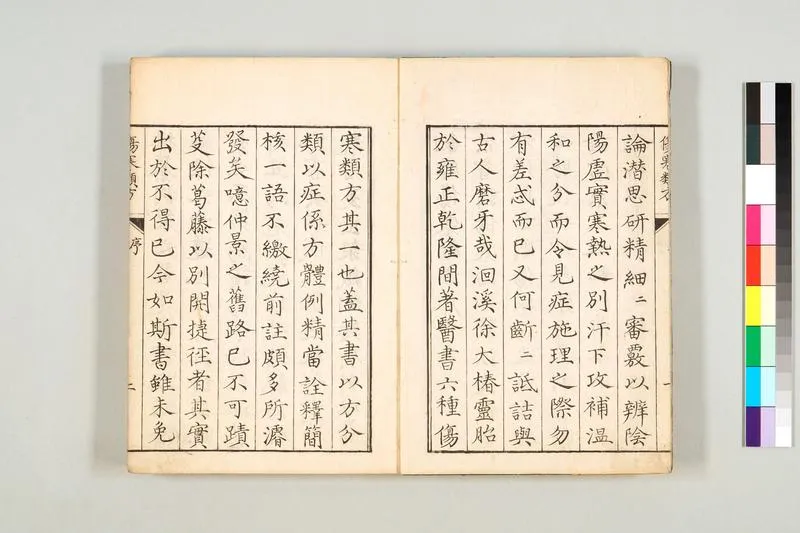 論潜思研精細〻審覈以辨陰
陽虚實寒熱之別汗下攻補温
和之分而令見症施理之際勿
有差忒而已又何齗〻詆詰與
古人磨牙哉洄溪徐大椿靈胎
於雍正乾隆間著醫書六種傷
寒類方其一也蓋其書以方分
類以症係方體例精當詮釋簡
核一語不繳繞前註頗多所濬
發矣噫仲景之舊路已不可蹟
芟除葛藤以別開捷徑者其實
出於不得已今如斯書雖未免
傷寒類方
序
二
傷寒類方
一